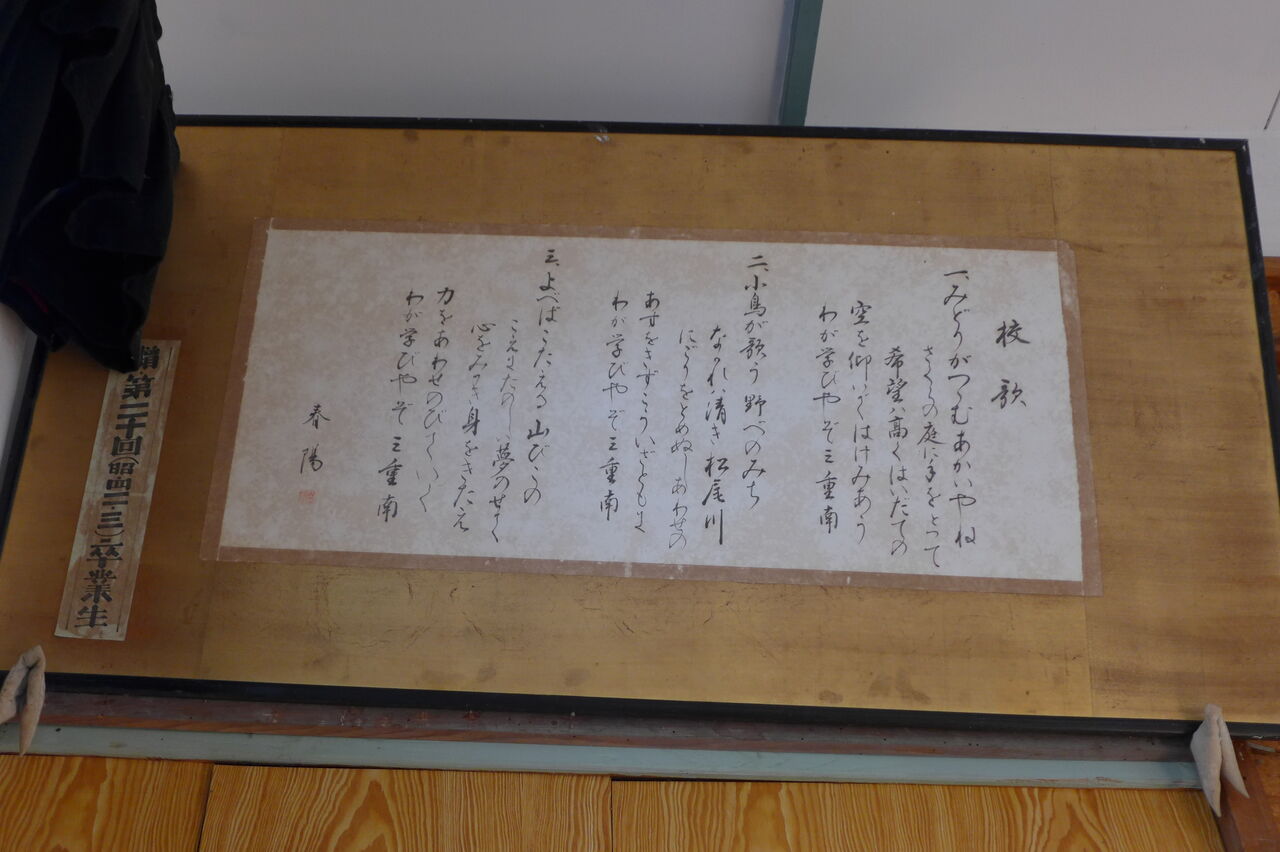 校歌
一、みどりがつつむあかいやね
さくらの庭に手をとって
希望は高くはいたての
空を仰いではげみあう
わが学びやぞ三重南
二、小鳥が歌う野べのみち
ながれは清き松尾川
にごりをとめぬしあわせの
あすをきずこういざともに
わが学びやぞ三重南
三、よべばこたえる山びこの
こえもたのしい夢のせて
心をみがき身をきたえ
力をあわせのびていく
わが学びやぞ三重南
春陽
贈第二十回(昭四二・三)卒業生